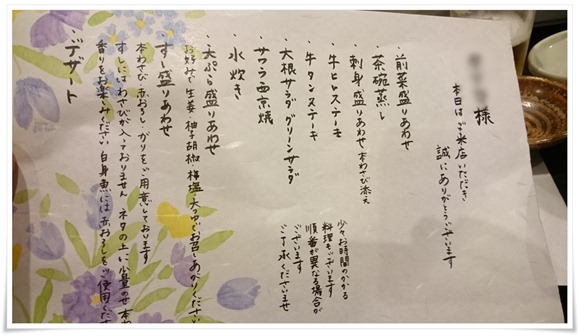 様
本日はご来店いただき
誠にありがとうございます
・前菜盛りあわせ
・茶碗蒸し
・刺身盛りあわせ 本わさび添え
・牛ヒレステーキ
・牛タンステーキ
・大根サラダ グリーンサラダ
・サワラ西京焼
・水炊き
・天ぷら盛りあわせ
お好みで 生姜 柚子胡椒 梅塩 天つゆでお召しあがりください
・すし盛りあわせ
本わさび 赤おろし がりをご用意しております
すしにはわさびが入っておりません ネタの上に少量のせ 本わ
香りをお楽しみください 白身魚には赤おろしをご使用くださ
・デザート
少々お時間のかかる
料理もございます
順番が異なる場合が
ございます
ご了承くださいませ